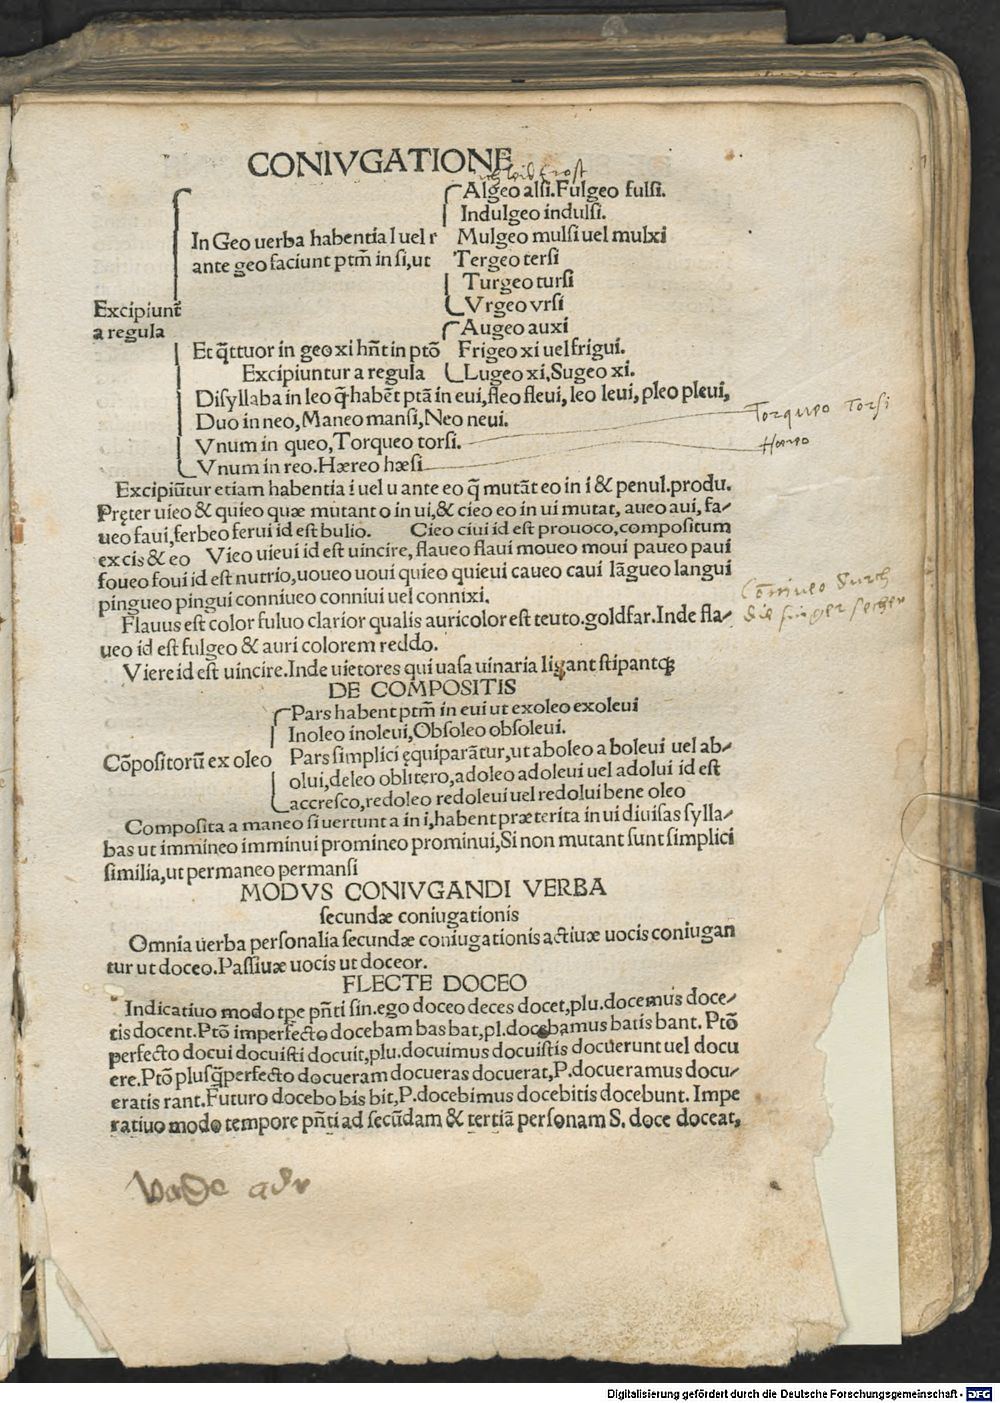 CONIVGATIONE
ich leid frost
Algeo alſi. Fulgeo fulſi.
Indulgeo indulſi.
In Geo uerba habentia l uel r Mulgeo mulſi uel mulxi
ante geo faciunt ptm̄ in ſi, ut Tergeo terſi
Turgeo turſi
Excipiunt̃ Vrgeo vrſi
a regula Augeo auxi
Et q̃ttuor in geo xi hñt in ptō Frigeo xi uel frigui.
Excipiuntur a regula Lugeo xi, Sugeo xi.
Diſyllaba in leo q̃ habẽt ptã in eui, fleo fleui, leo leui, pleo pleui,
Duo in neo, Maneo manſi, Neo neui.
Torqueo Torſi
Vnum in queo, Torqueo torſi.
Hæreo
Vnum in reo. Hæreo hæſi
Excipiũtur etiam habentia i uel u ante eo q̃ mutãt eo in i & penul. produ.
Pręter uieo & quieo quæ mutant o in ui, & cieo eo in ui mutat, aueo aui, fa⸗
ueo faui, ferbeo ferui id eſt bulio. Cieo ciui id eſt prouoco, compoſitum
ex cis & eo Vieo uieui id eſt uincire, flaueo flaui moueo moui paueo paui
foueo foui id eſt nutrio, uoueo uoui quieo quieui caueo caui lãgueo langui
pingueo pingui conniueo conniui uel connixi.
Cõniueo durch
die finger ſechen
Flauus eſt color fuluo clarior qualis auricolor eſt teuto. goldfar. Inde fla⸗
ueo id eſt fulgeo & auri colorem reddo.
Viere id eſt uincire. Inde uietores qui uaſa uinaria ligant ſtipantqȝ
DE COMPOSITIS
Pars habent ptm̄ in eui ut exoleo exoleui
Inoleo inoleui, Obſoleo obſoleui.
Cõpoſitorũ ex oleo Pars ſimplici ęquiparãtur, ut aboleo aboleui uel ab⸗
olui, deleo oblitero, adoleo adoleui uel adolui id eſt
accreſco, redoleo redoleui uel redolui bene oleo
Compoſita a maneo ſi uertunt a in i, habent præterita in ui diuiſas ſylla⸗
bas ut immineo imminui promineo prominui, Si non mutant ſunt ſimplici
ſimilia, ut permaneo permanſi
MODVS CONIVGANDI VERBA
ſecundæ coniugationis
Omnia uerba perſonalia ſecundæ coniugationis actiuæ uocis coniugan
tur ut doceo. Paſſiuæ uocis ut doceor.
FLECTE DOCEO
Indicatiuo modo tpe pñti ſin. ego doceo deces docet, plu. docemus doce⸗
tis docent. Ptō imperfecto docebam bas bat, pl. docebamus batis bant. Ptō
perfecto docui docuiſti docuit, plu. docuimus docuiſtis docuerunt uel docu
ere. Ptō pluſq̃perfecto docueram docueras docuerat, P. docueramus docu⸗
eratis rant. Futuro docebo bis bit, P. docebimus docebitis docebunt. Impe
ratiuo modo tempore pñti ad ſecũdam & tertiã perſonam S. doce doceat,
Vade adr
Digitalisierung gefördert durch die Deutsche Forschungsgemeinschaft - DFG